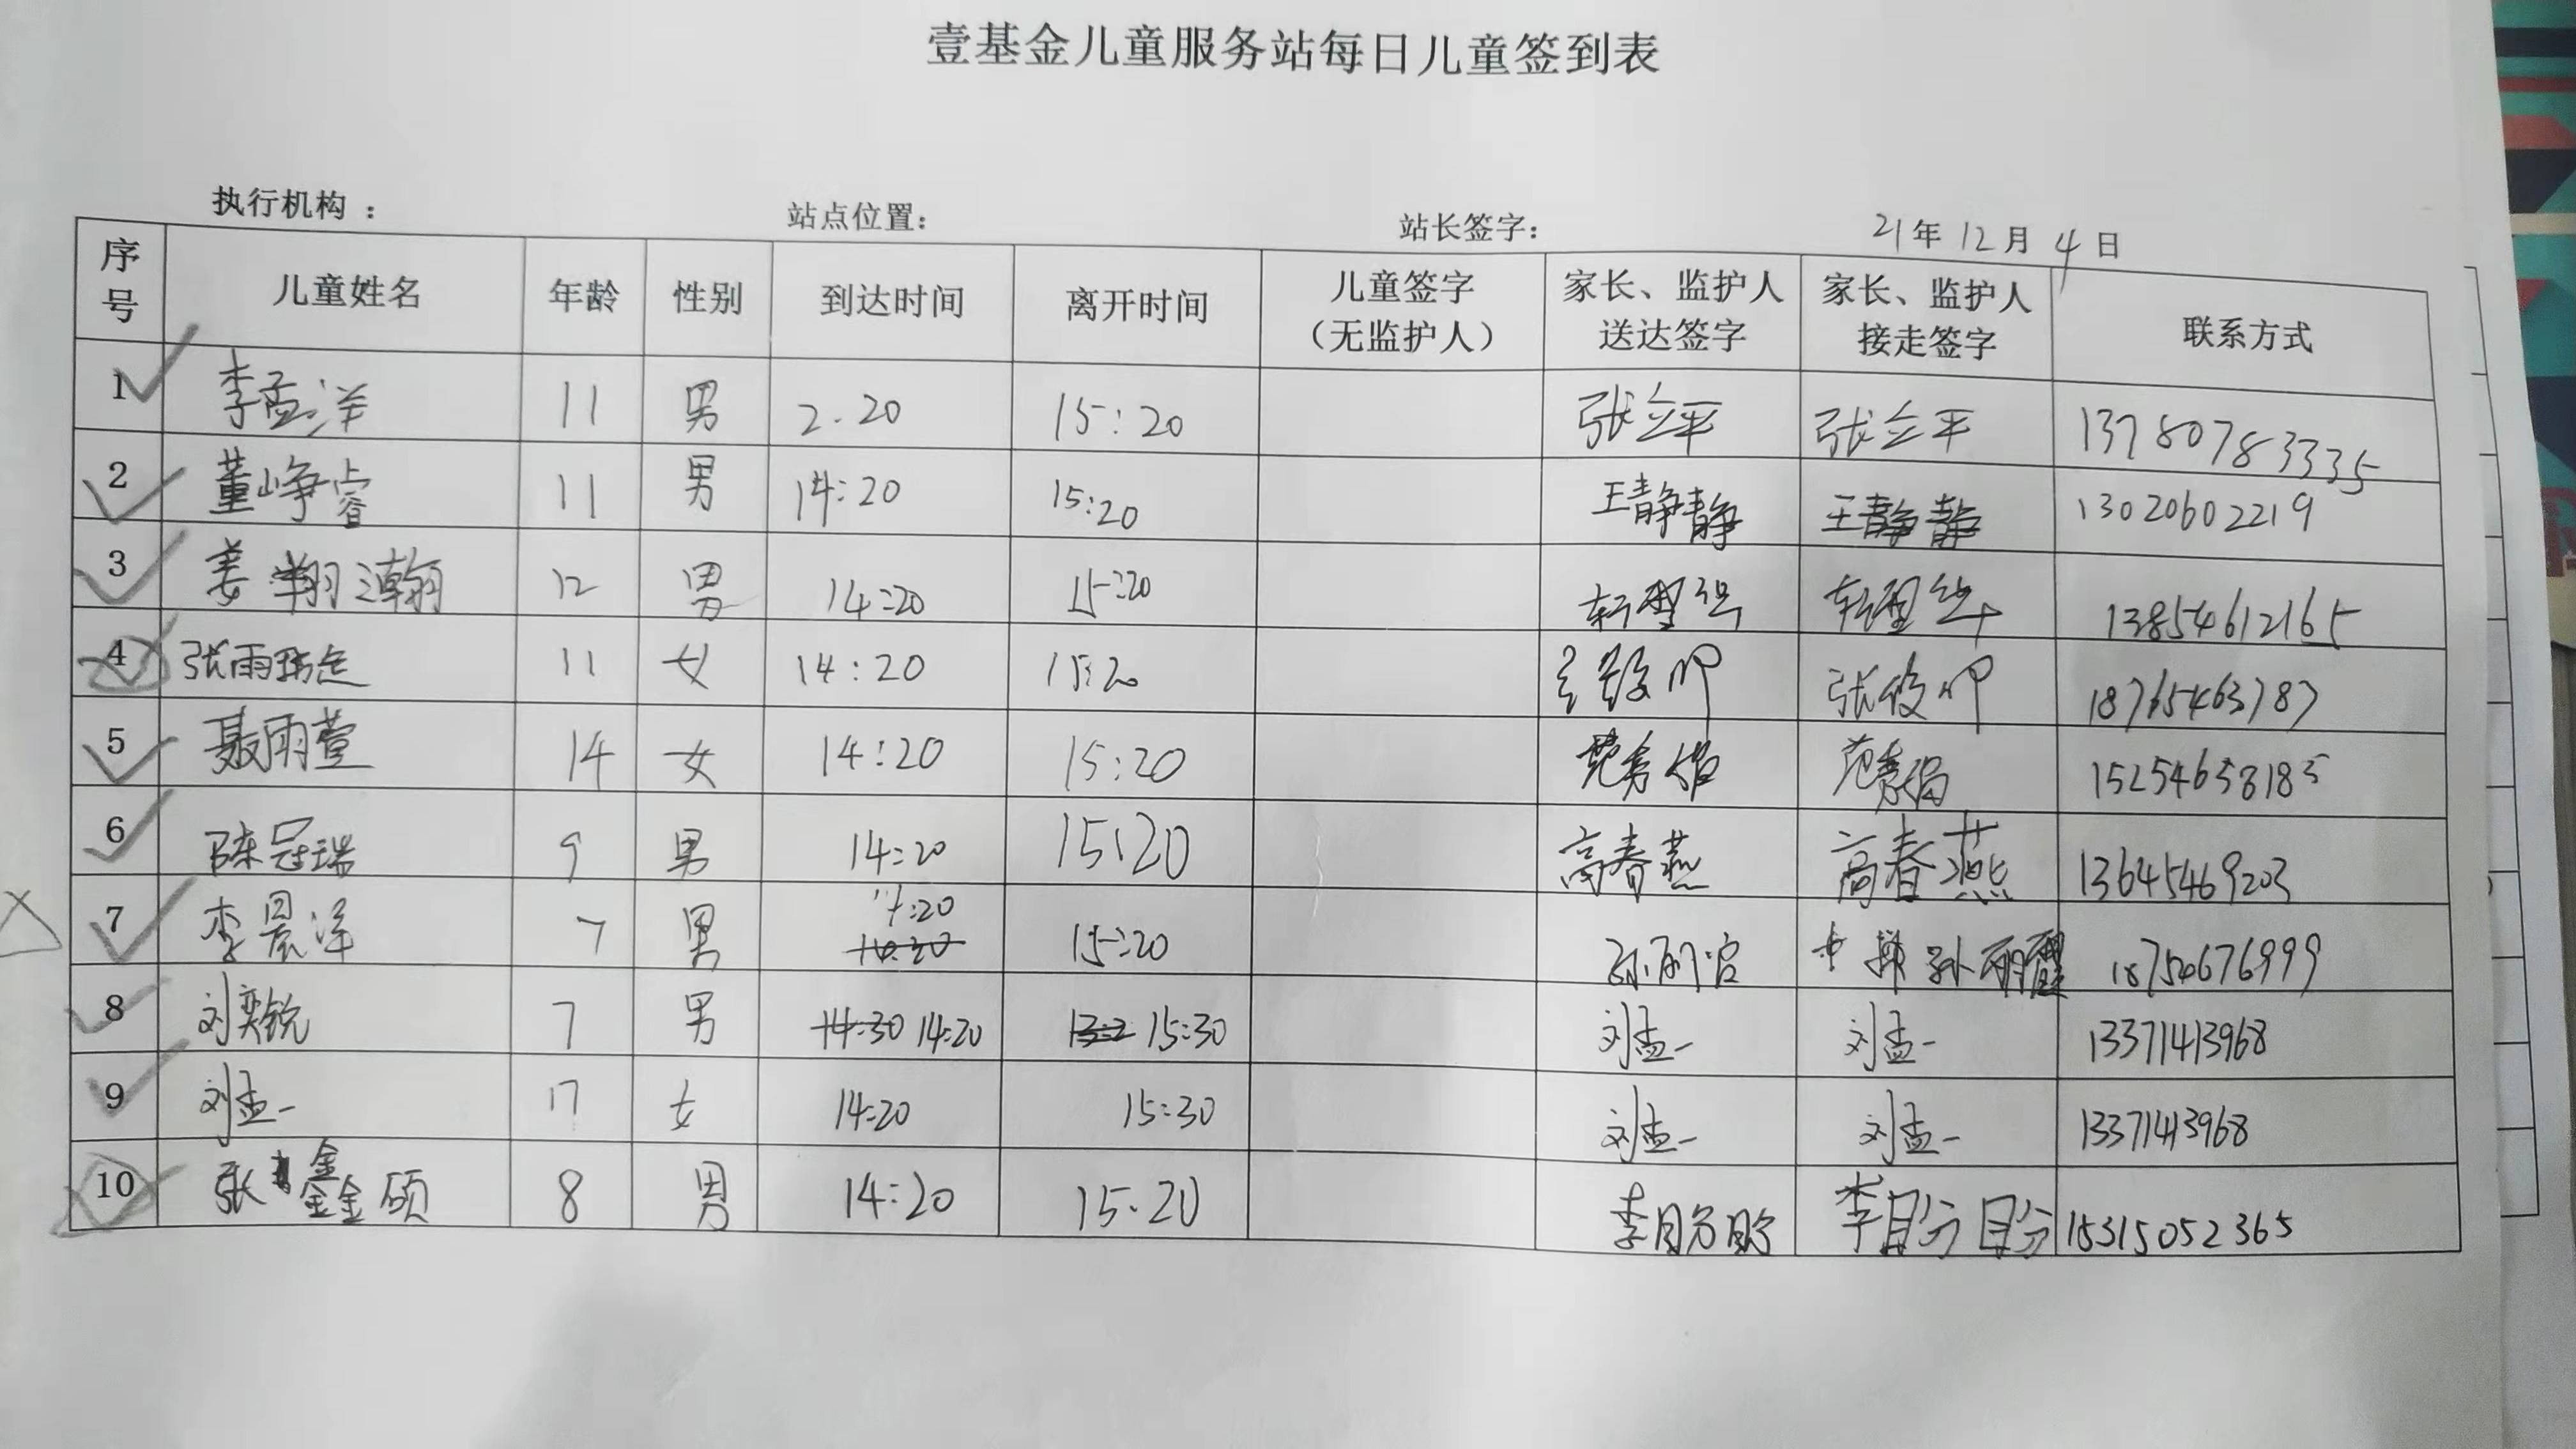 壹基金儿童服务站每日儿童签到表
执行机构： 站点位置： 站长签字： 21年12月4日
序号 儿童姓名 年龄 性别 到达时间 离开时间 儿童签字（无监护人） 家长、监护人送达签字 家长、监护人接走签字 联系方式
1 李孟洋 11 男 2.20 15:20 张立平 张立平 13780783335
2 董峥睿 11 男 14:20 15:20 王静静 王静静 13020602219
3 姜翔瀚 12 男 14:20 15:20 13854612165
4 张雨 11 女 14:20 15:20 张俊 18765463787
5 聂雨萱 14 女 14:20 15:20 15254658185
6 陈冠瑞 9 男 14:20 15:20 高春燕 高春燕 13645469203
7 李晨洋 7 男 14:20 15:20 孙丽 18754676999
8 刘奕锐 7 男 14:30 14:20 15:30 刘孟一 刘孟一 13371413968
9 刘孟一 17 女 14:20 15:30 刘孟一 刘孟一 13371413968
10 张鑫硕 8 男 14:20 15:20 李盼盼 李盼盼 15315052365